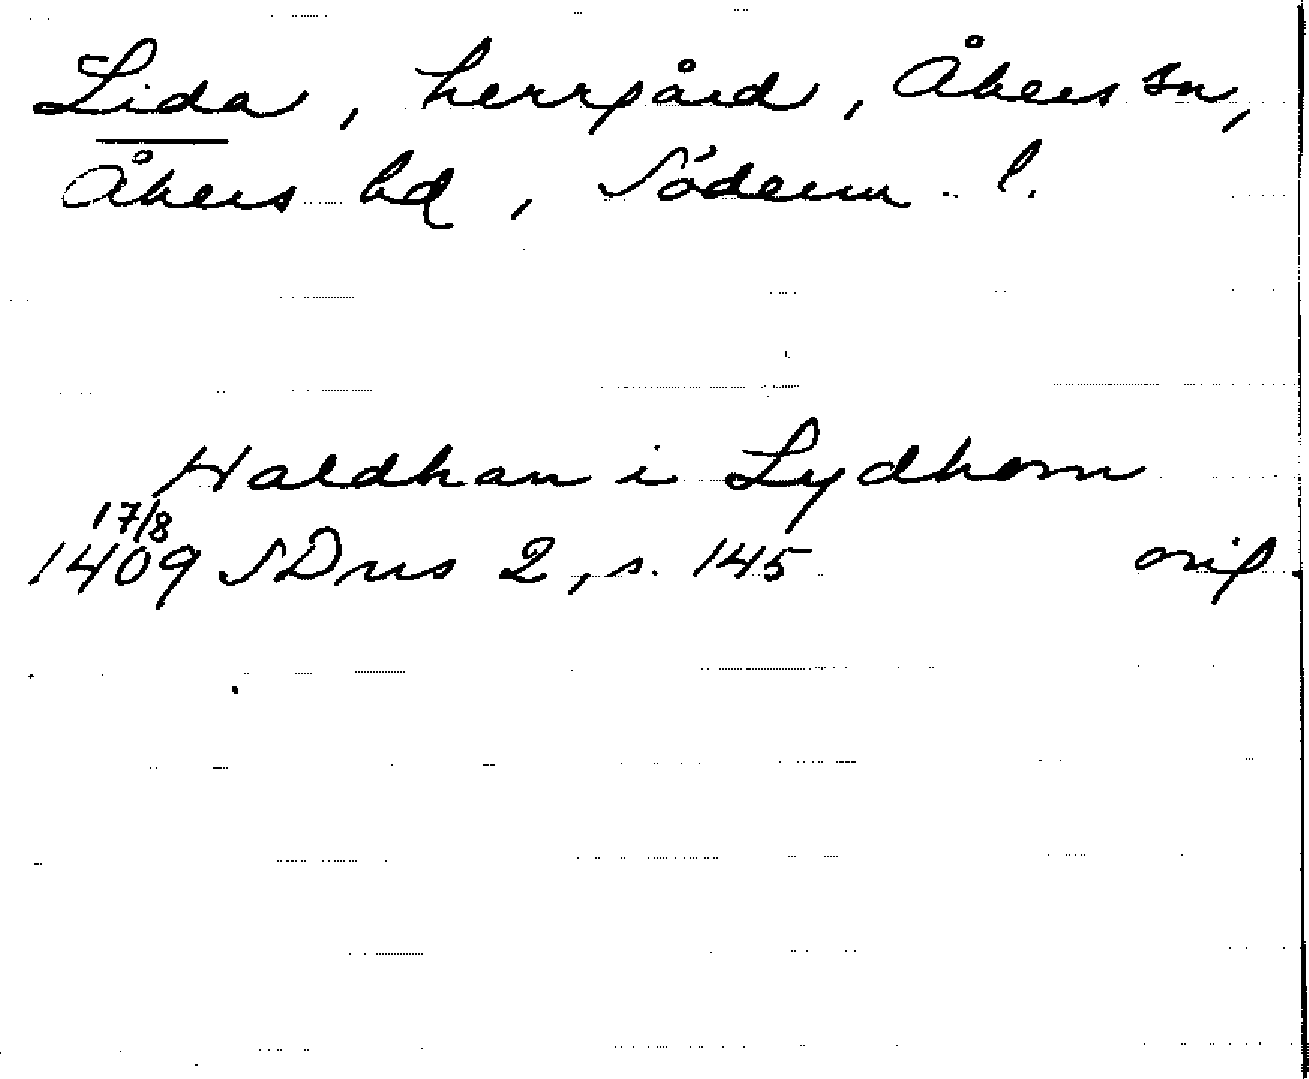 Lida, herrgård, Åkers sn,
Åkers hd, Söderm. l.
Haldhan i Lydhom
17/8
1409 SDns 2, s. 145 orig.